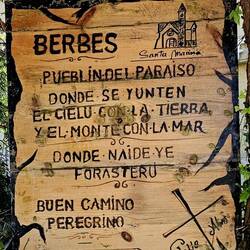 BERBES
Santa Marina
PUEBLÍN·DEL·PARAÍSO
DONDE·SE·YUNTEN
EL·CIELU·CON·LA·TIERRA
Y·EL·MONTE·CON·LA·MAR
DONDE·NAIDE·YE
FORASTERU
BUEN CAMINO
PEREGRINO